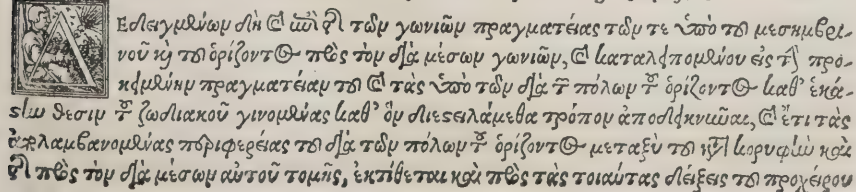 Δεδειγμένων δὴ καὶ ἐπὶ τῶν γωνιῶν πραγματείας τῶν τε ὑπὸ τοῦ μεσημβρι-
νοῦ καὶ τοῦ ὁρίζοντος πρὸς τὸν διὰ μέσων γωνιῶν, καὶ καταλειπομένου εἰς τὴν προ-
κειμένην πραγματείαν τοῦ καὶ τὰς ὑπὸ τῶν διὰ τῶν πόλων τοῦ ὁρίζοντος καθ' ἑκά-
στην θέσιν τοῦ ζωδιακοῦ γινομένας καθ' ὃν διεστειλάμεθα τρόπον ἀποδεικνῦναι, καὶ ἔτι τὰς
ἀπολαμβανομένας περιφερείας τοῦ διὰ τῶν πόλων τοῦ ὁρίζοντος μεταξὺ τοῦ κατὰ κορυφὴν καὶ
τῆς πρὸς τὸν διὰ μέσων αὐτοῦ τομῆς, ἐκτίθεται καὶ πρὸς τὰς τοιαύτας δείξεις τοῦ προχείρου